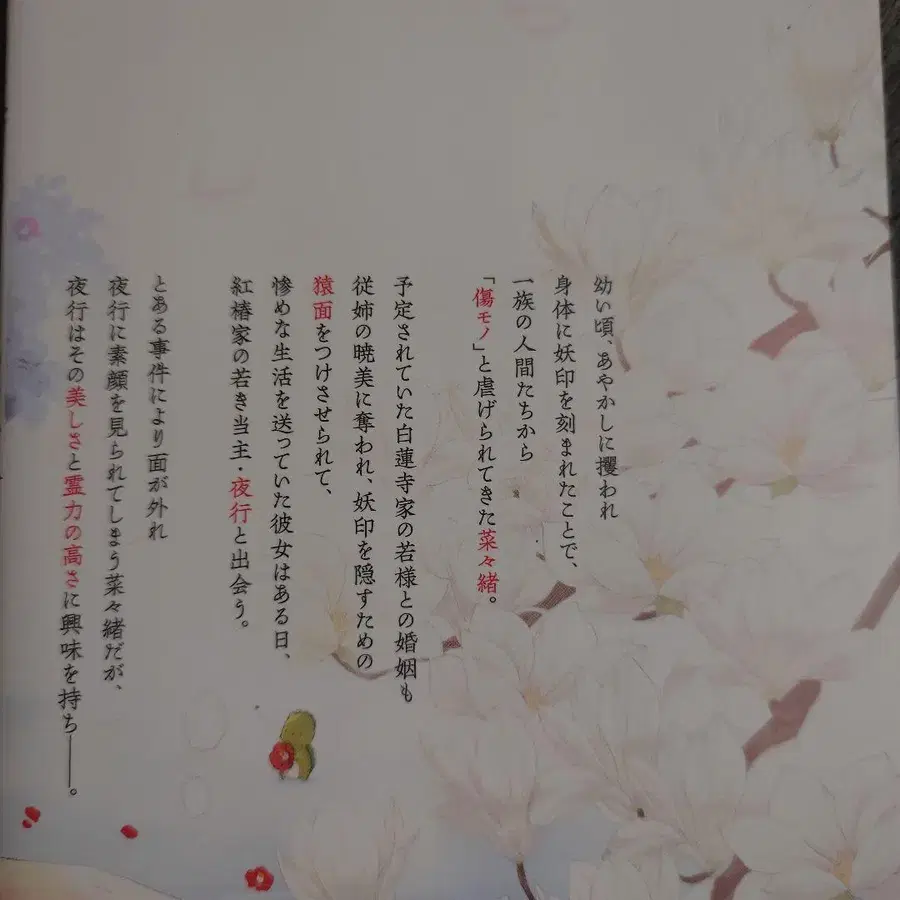 幼い頃、あやかしに攫われ
身体に妖印を刻まれたことで、
一族の人間たちから
「傷モノ」と虐げられてきた菜々緒。
予定されていた白蓮寺家の若様との婚姻も
従姉の暁美に奪われ、妖印を隠すための
猿面をつけさせられて、
惨めな生活を送っていた彼女はある日、
紅椿家の若き当主・夜行と出会う。
とある事件により面が外れ
夜行に素顔を見られてしまう菜々緒だが、
夜行はその美しさと霊力の高さに興味を持ち――。